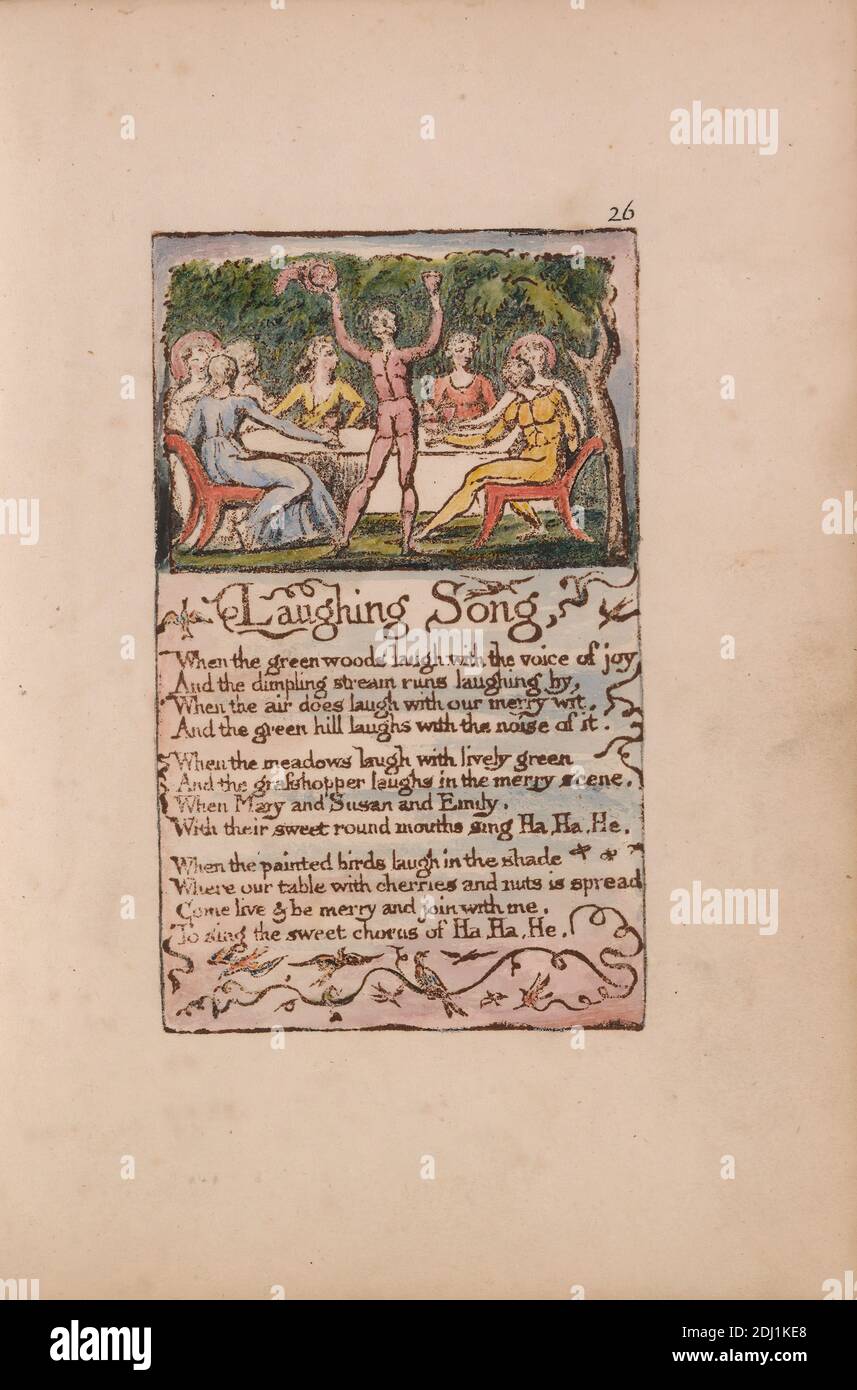 26
Laughing Song,
When the green woods laugh with the voice of joy
And the dimpling stream runs laughing by,
When the air does laugh with our merry wit.
And the green hill laughs with the noise of it.
When the meadows laugh with lively green
And the grasshopper laughs in the merry scene.
When Mary and Susan and Emily.
With their sweet round mouths sing Ha, Ha, He.
When the painted birds laugh in the shade
Where our table with cherries and nuts is spread
Come live & be merry and join with me.
To sing the sweet chorus of Ha, Ha, He.
a alamy
alamy
Image ID: 2DJ1KE8
www.alamy.com